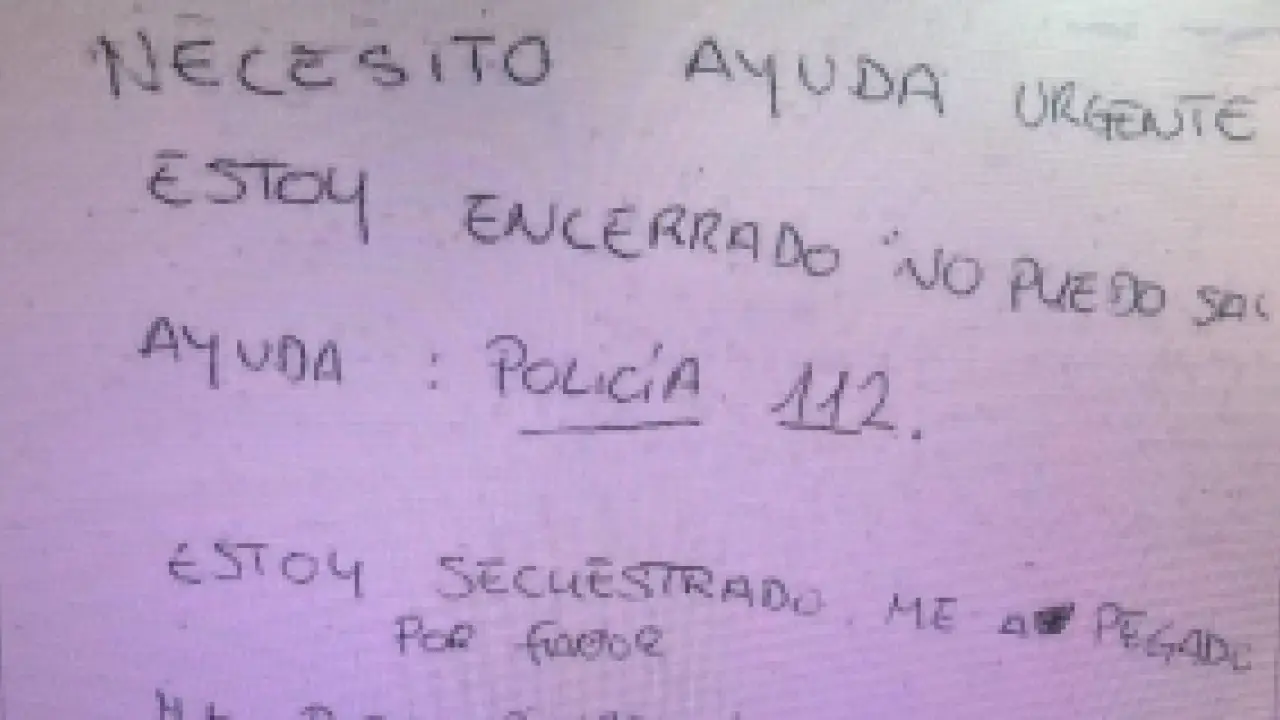 NECESITO AYUDA URGENTE
ESTOY ENCERRADO NO PUEDO SAL
AYUDA : POLICÍA 112.
ESTOY SECUESTRADO. ME A PEGADO
POR favor